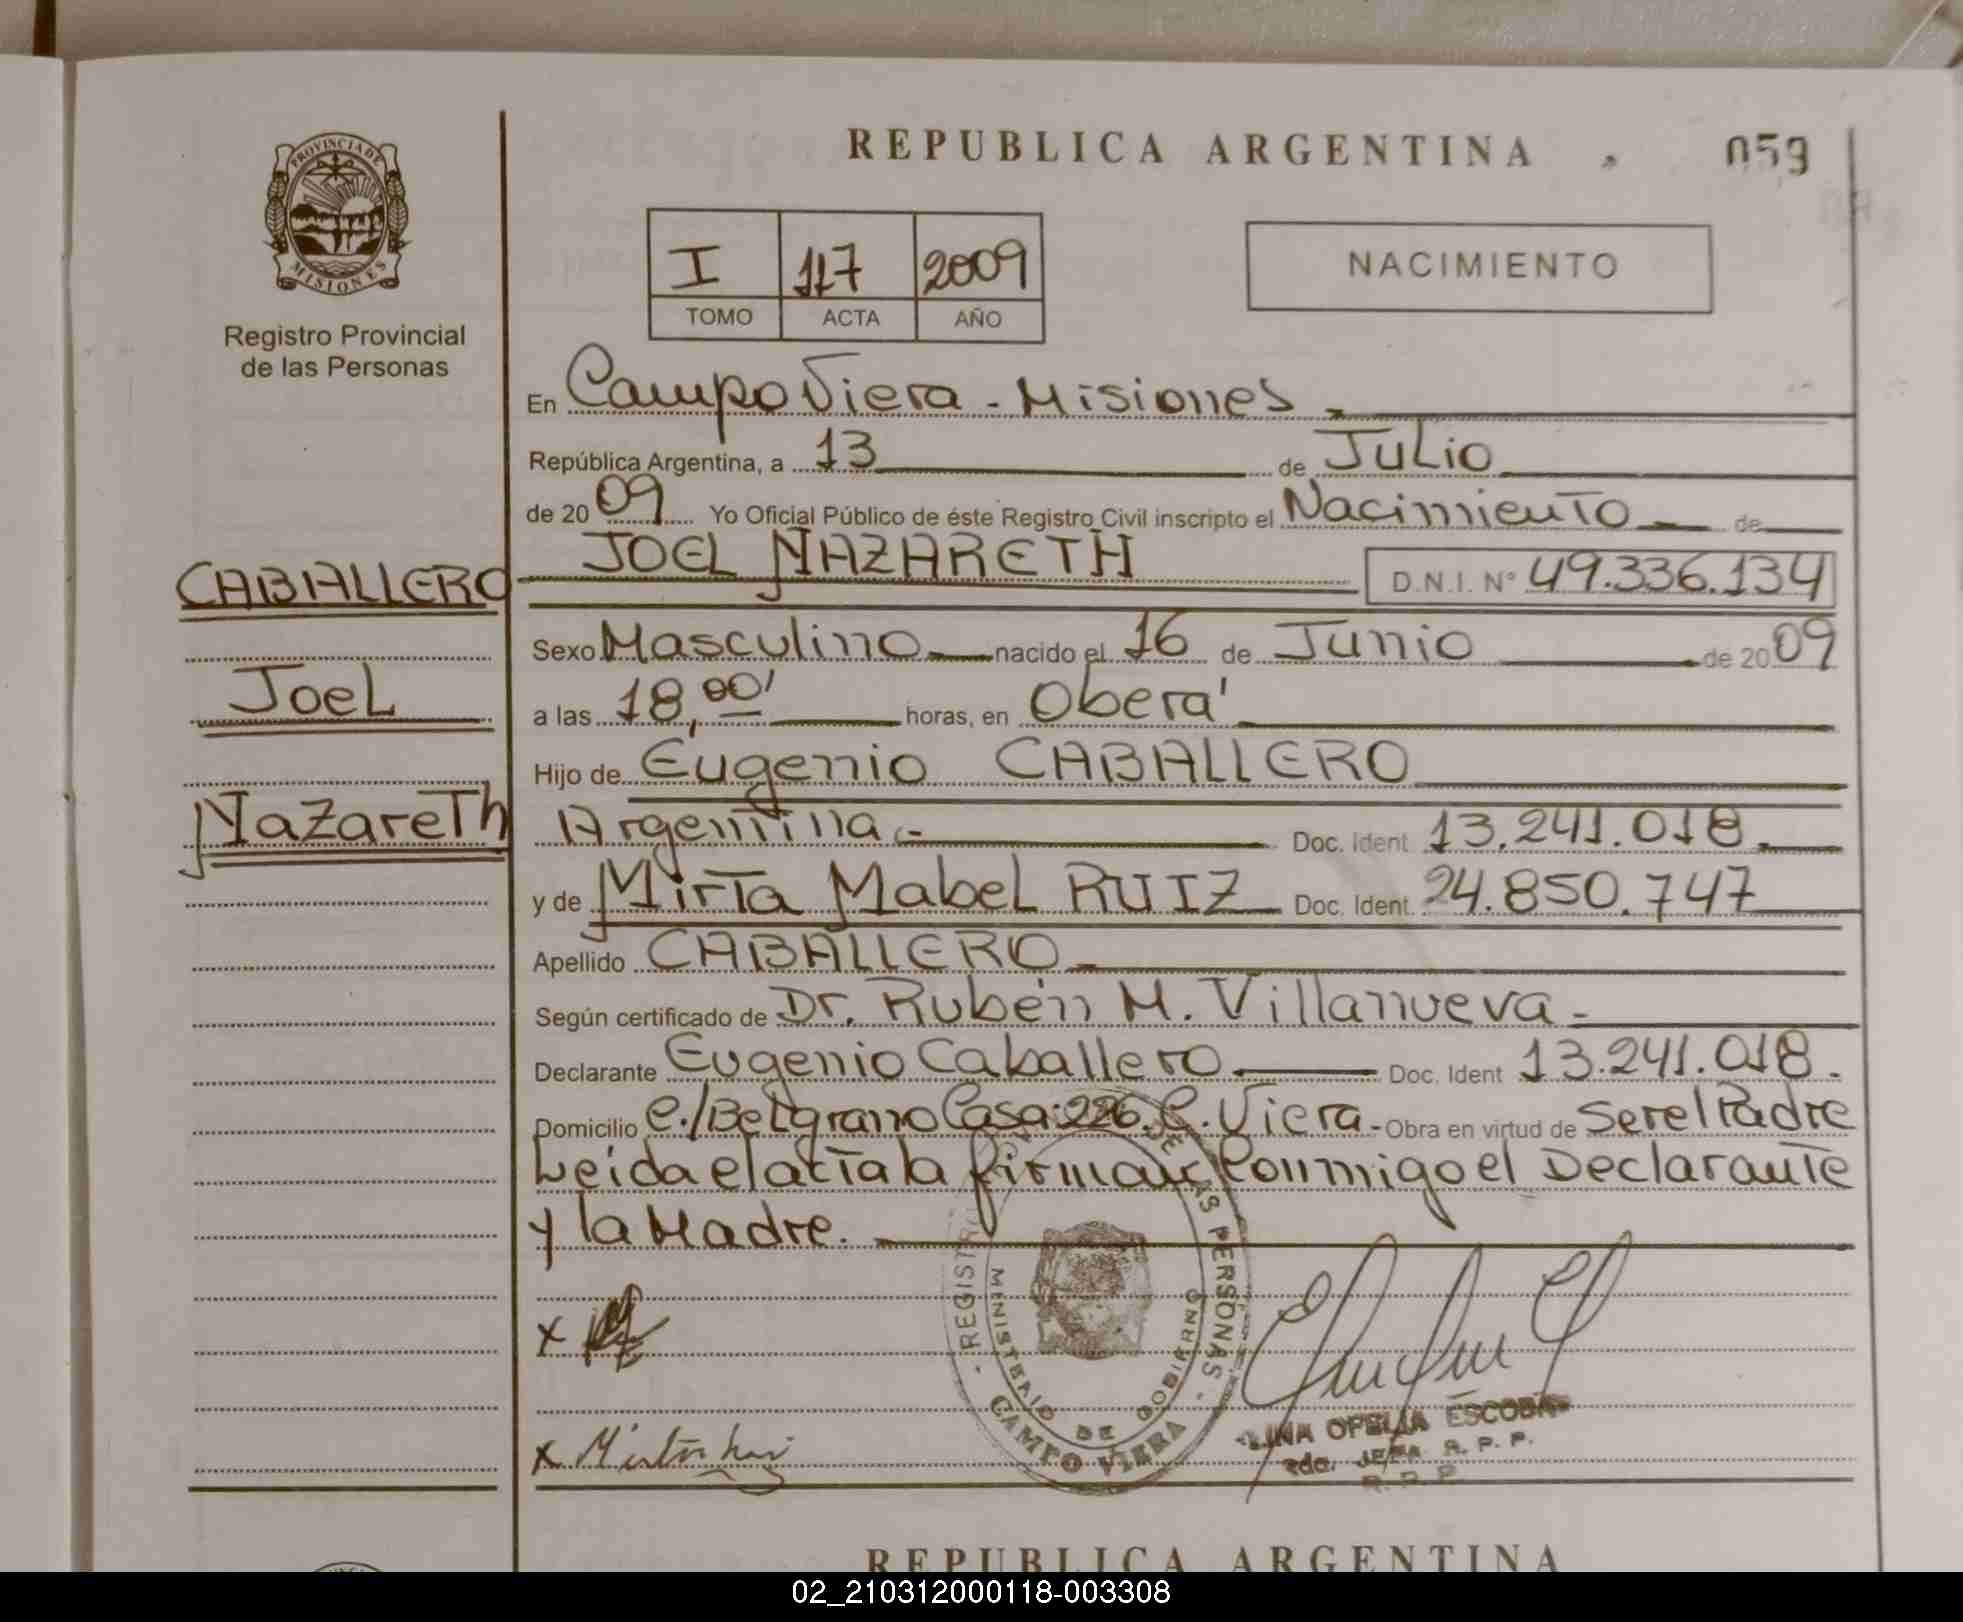 REPUBLICA ARGENTINA
059
PROVINCIA DE
MISIONES
Registro Provincial
de las Personas
I 117 2009
TOMO ACTA AÑO
NACIMIENTO
En Campo Viera - Misiones.
República Argentina, a 13 de Julio
de 2009 Yo Oficial Público de éste Registro Civil inscripto el Nacimiento de
CABALLERO JOEL NAZARETH D.N.I. N° 49.336.134
Sexo Masculino nacido el 16 de Junio de 2009
Joel a las 18,00' horas, en Oberá
Hijo de Eugenio CABALLERO
Nazareth Argentina.- Doc. Ident 13.241.018.
y de Mirta Mabel RUIZ Doc. Ident. 24.850.747
Apellido CABALLERO.
Según certificado de Dr. Rubén M. Villanueva.
Declarante Eugenio Caballero Doc. Ident 13.241.018.
Domicilio C./Belgrano Casa:226. C. Viera.- Obra en virtud de Ser el Padre
Leida el acta la firman conmigo el Declarante
y la Madre.
REGISTRO DE LAS PERSONAS
MINISTERIO DE GOBIERNO
CAMPO VIERA
LINA OFELIA ESCOBAR
JEFA R.P.P.
R.P.P.
REPUBLICA ARGENTINA
02_210312000118-003308